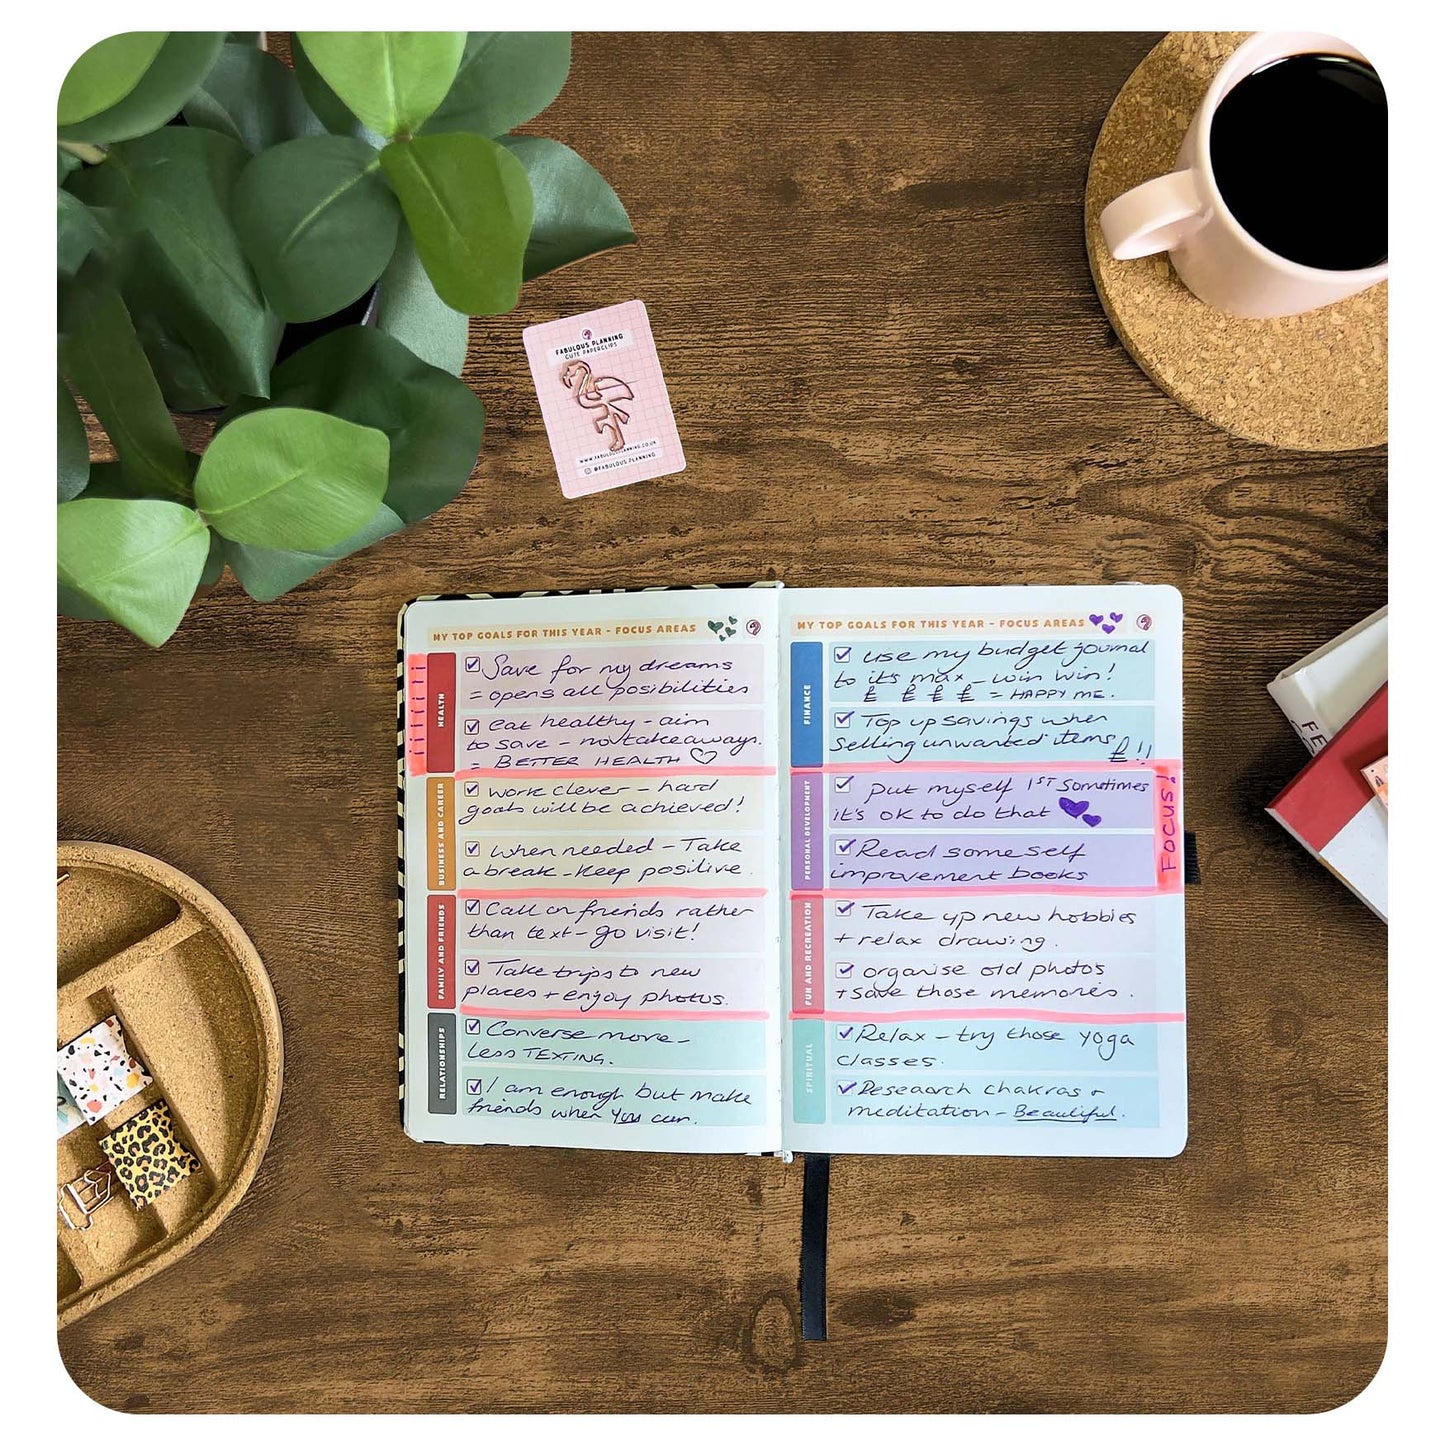 FABULOUS PLANNING
CUTE PAPERCLIPS
WWW.FABULOUSPLANNING.CO.UK
@FABULOUS.PLANNING
MY TOP GOALS FOR THIS YEAR - FOCUS AREAS
HEALTH
Save for my dreams
= opens all posibilities
eat healthy - aim
to save - no takeaways.
= BETTER HEALTH
BUSINESS AND CAREER
work clever - hard
goals will be achieved!
when needed - Take
a break - keep positive.
FAMILY AND FRIENDS
Call on friends rather
than text - go visit!
Take trips to new
places + enjoy photos.
RELATIONSHIPS
Converse more -
LESS TEXTING.
I am enough but make
friends when you can.
MY TOP GOALS FOR THIS YEAR - FOCUS AREAS
FINANCE
use my budget journal
to its max - win win!
£ £ £ £ = HAPPY ME.
Top up savings when
selling unwanted items
£!!
PERSONAL DEVELOPMENT
put myself 1ST sometimes
it's ok to do that
Read some self
improvement books
FOCUS!
FUN AND RECREATION
Take up new hobbies
+ relax drawing.
organise old photos
+ save those memories.
SPIRITUAL
Relax - try those yoga
classes.
Research chakras +
meditation - Beautiful.